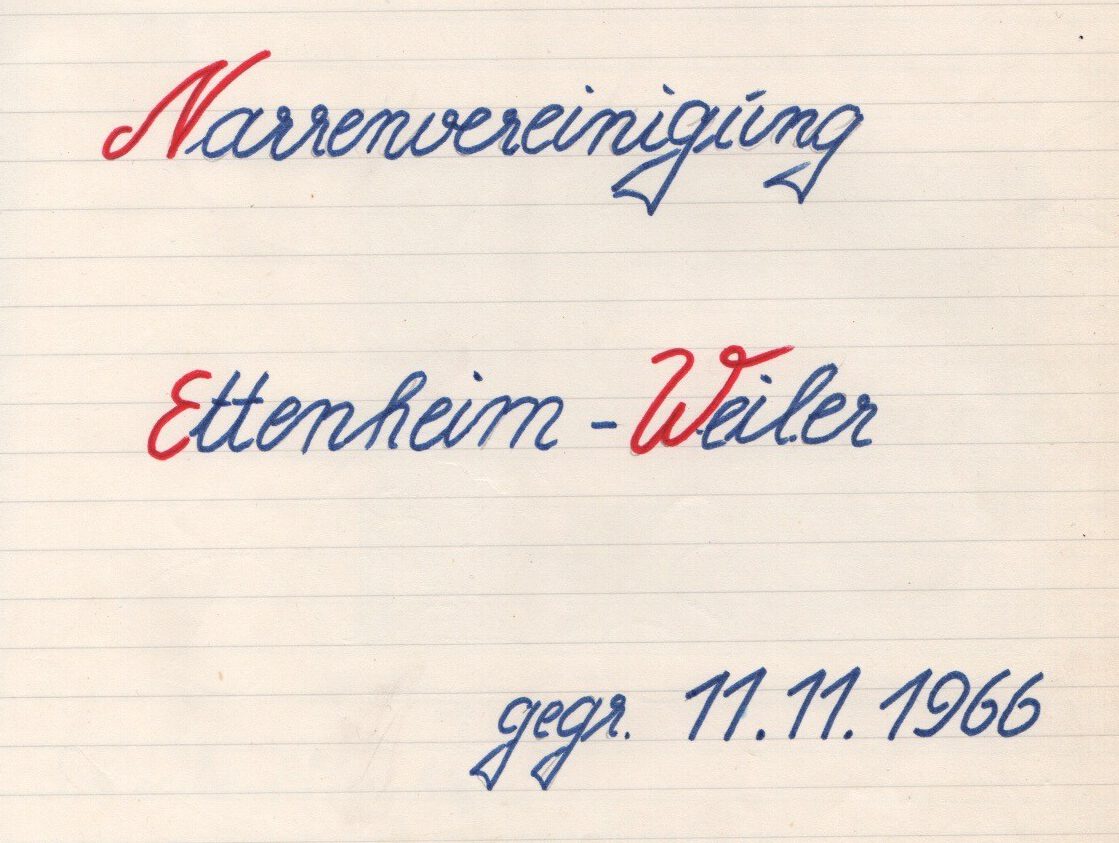 Narrenvereinigung
Ettenheim - Weiler
gegr. 11.11.1966